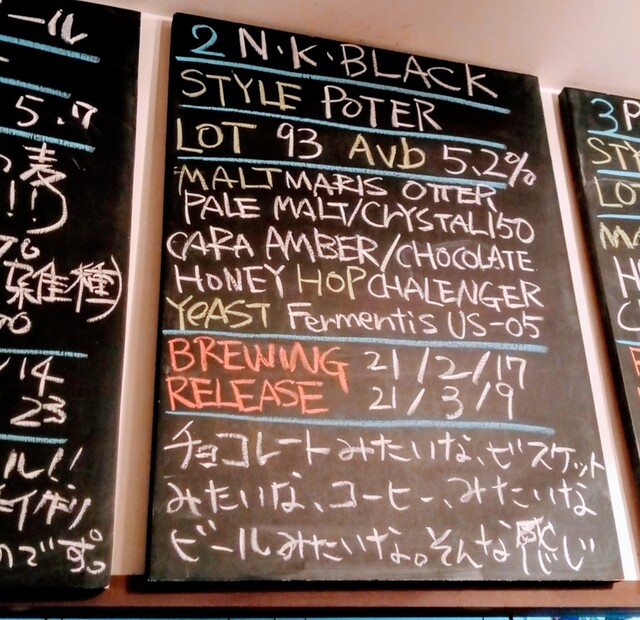 ール
5.7
麦
!!)
雑種)
14
23
ル!!
のです。
2 N・K・BLACK
STYLE POTER
LOT 93 Avb 5.2%
MALT MARIS OTTER
PALE MALT/CrYSTAL150
CARA AMBER/CHOCOLATE
HONEY HOP CHALENGER
YeAST Fermentis US-05
BREWING 21/2/17
RELEASE 21/3/9
チョコレートみたいな、ビスケット
みたいな、コーヒー、みたいな
ビールみたいな。そんな感じ
3P
STY
LO
MA
H
C